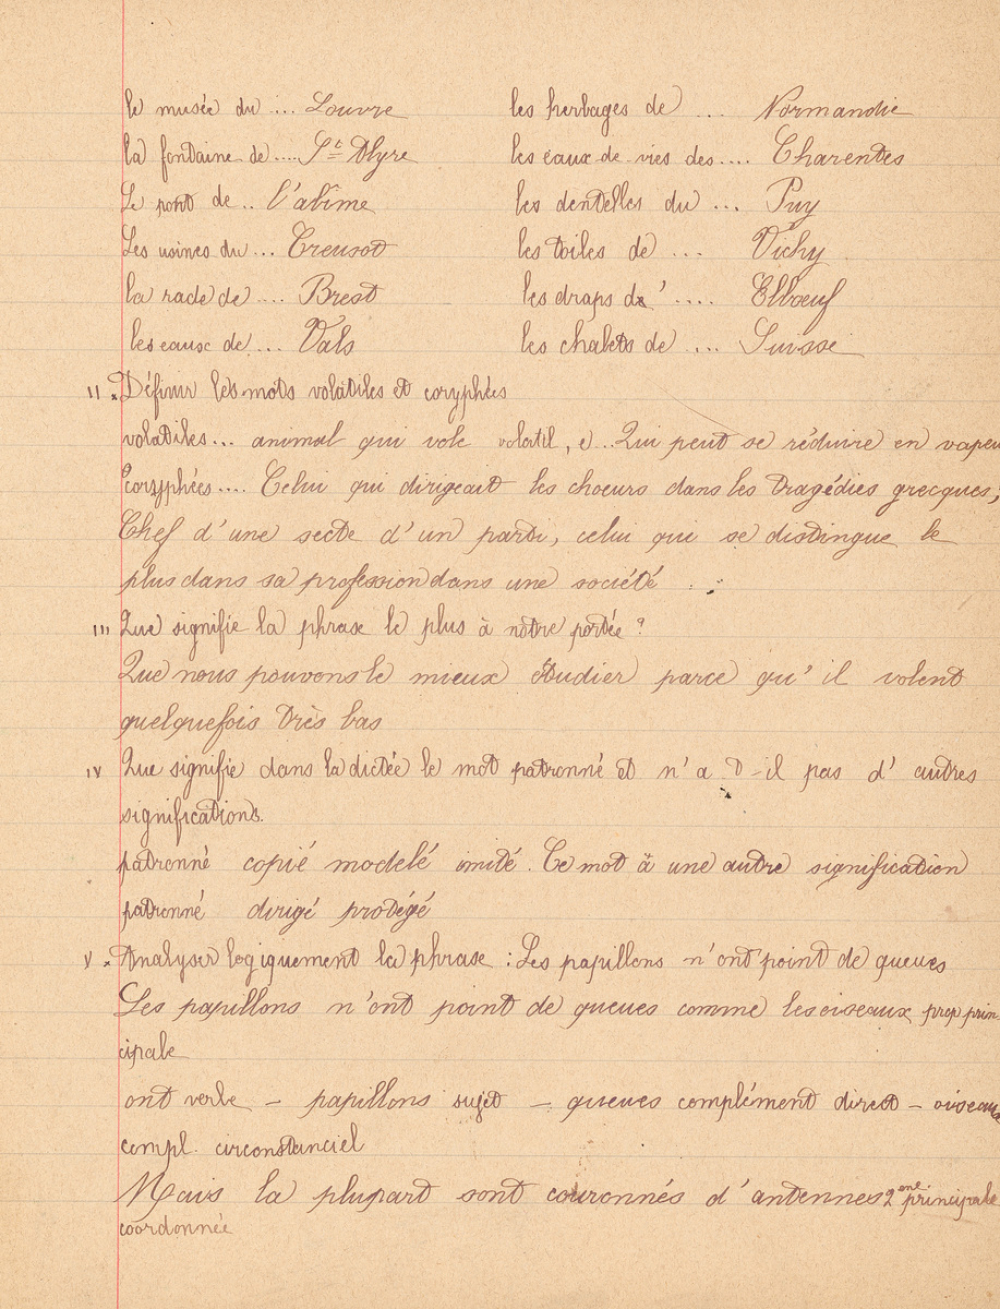 le musée du .... Louvre les herbages de ... Normandie
la fontaine de ..... St Alyre les eaux de vies des .... Charentes
Le pont de .. l'abîme les dentelles du ... Puy
Les usines du ... Creusot les toiles de ... Vichy
la rade de .... Brest les draps d' .... Elboeuf
les eaux de .... Vals les chalets de .... Suisse
II. Définir les mots volatiles et coryphées
volatiles... animal qui vole volatil, e... Qui peut se réduire en vapeu
coryphées.... Celui qui dirigeait les choeurs dans les tragédies grecques;
Chef d'une secte d'un parti, celui qui se distingue le
plus dans sa profession dans une société
III Que signifie la phrase le plus à notre portée ?
Que nous pouvons le mieux étudier parce qu'il volent
quelquefois très bas
IV Que signifie dans la dictée le mot patronné et n'a t-il pas d'autres
significations.
patronné copié modelé imité. Ce mot à une autre signification
patronné dirigé protégé
V. Analyser logiquement la phrase : Les papillons n'ont point de queues
Les papillons n'ont point de queues comme les oiseaux prop prin-
cipale
ont verbe - papillons sujet - queues complément direct - oiseaux
compl. circonstanciel
Mais la plupart sont couronnés d'antennes 2eme principale
coordonnée